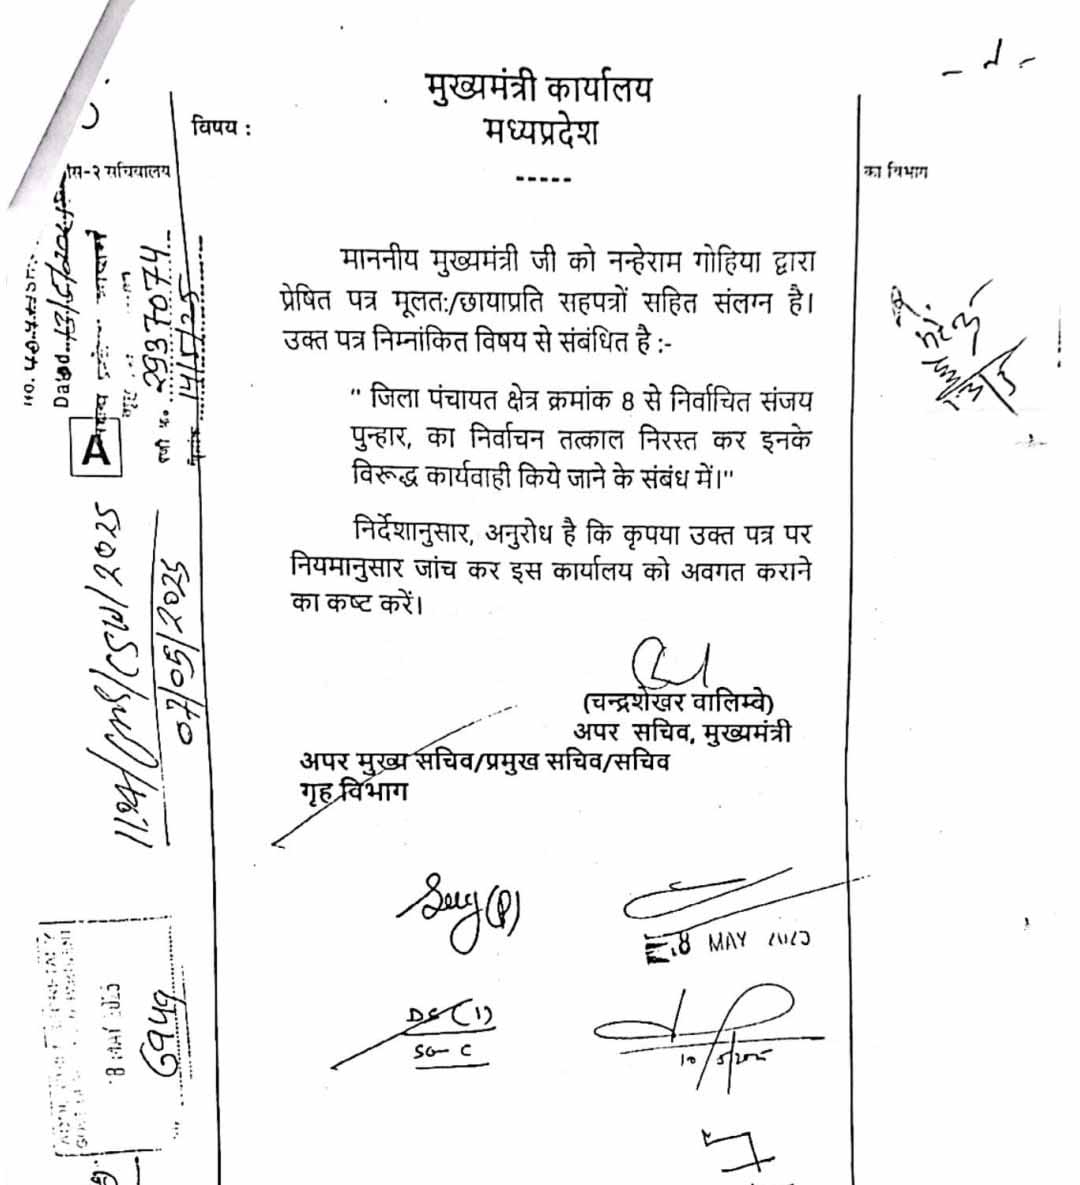 मुख्यमंत्री कार्यालय
मध्यप्रदेश
-----
विषय :
स-२ सचिवालय
का विभाग
माननीय मुख्यमंत्री जी को नन्हेराम गोहिया द्वारा
प्रेषित पत्र मूलत:/छायाप्रति सहपत्रों सहित संलग्न है।
उक्त पत्र निम्नांकित विषय से संबंधित है :-
" जिला पंचायत क्षेत्र क्रमांक 8 से निर्वाचित संजय
पुन्हार, का निर्वाचन तत्काल निरस्त कर इनके
विरूद्ध कार्यवाही किये जाने के संबंध में।"
निर्देशानुसार, अनुरोध है कि कृपया उक्त पत्र पर
नियमानुसार जांच कर इस कार्यालय को अवगत कराने
का कष्ट करें।
(चन्द्रशेखर वालिम्वे)
अपर सचिव, मुख्यमंत्री
अपर मुख्य सचिव/प्रमुख सचिव/सचिव
गृह विभाग
2937074
14/5/25
A
07/05/2025
8 MAY 2025
DS (1)
SO- C
10/5/2025
8 MAY 2025